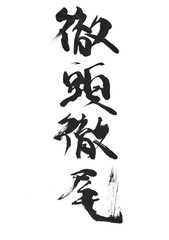 徹頭徹尾